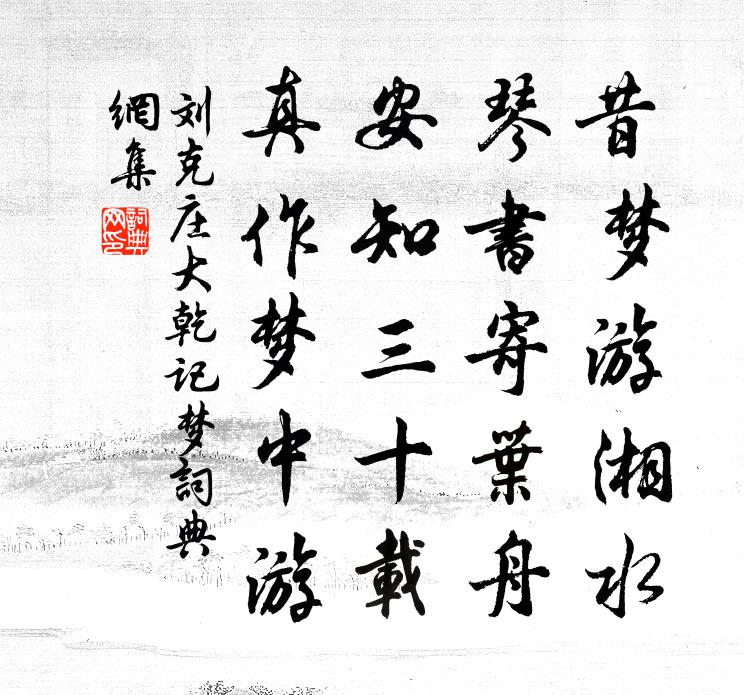 昔梦游湘水
琴書寄葉舟
安知三十載
真作梦中游
刘克庄大乾记梦詞典
網集
詞典
网印